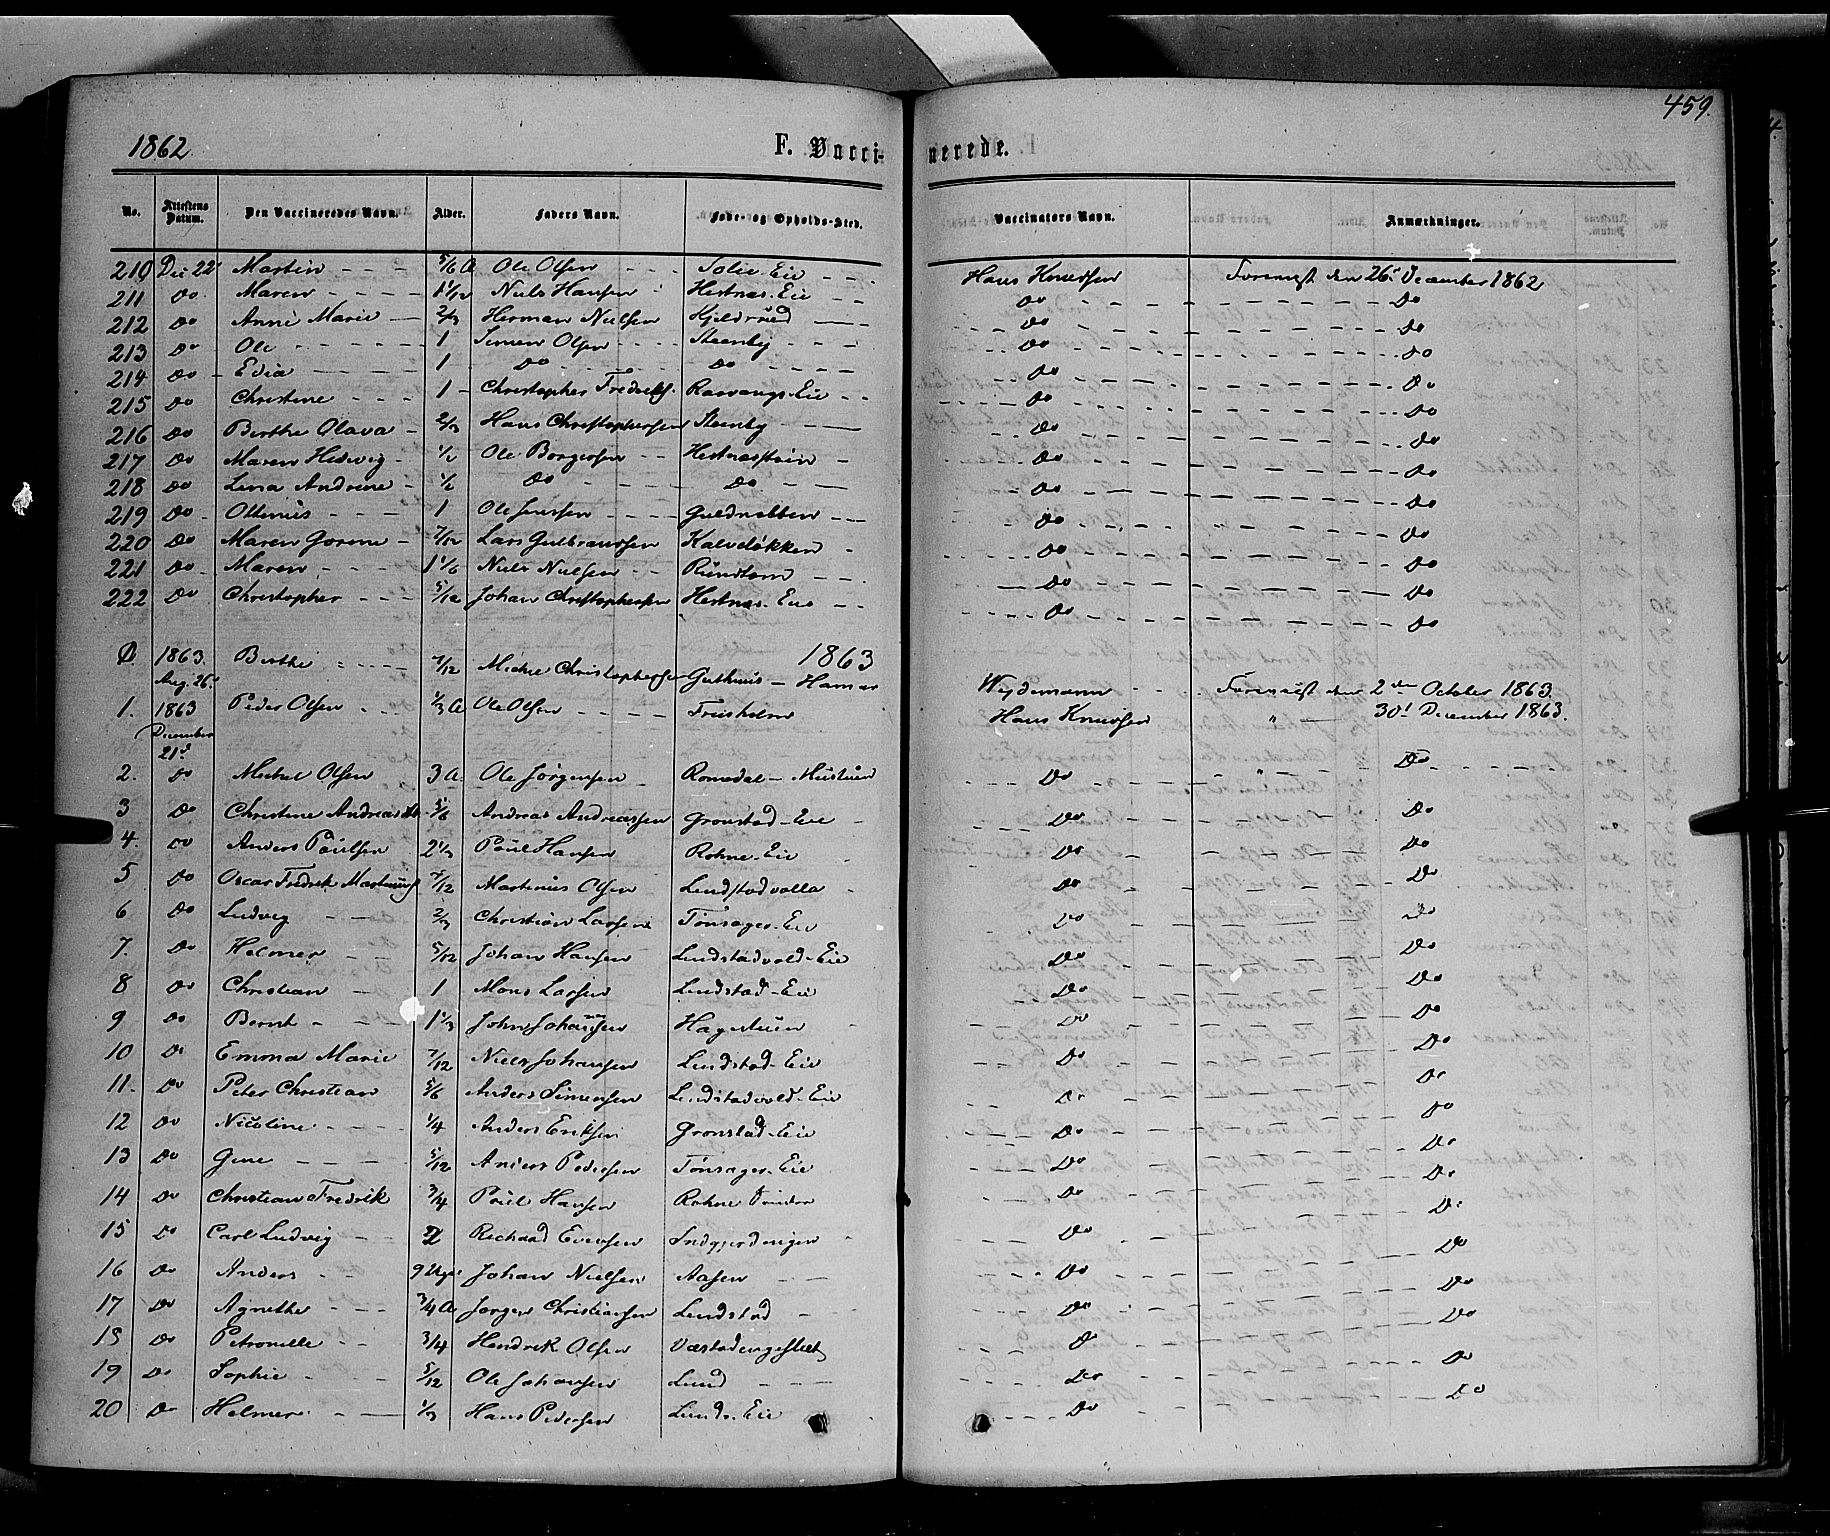 459.
1862 F. Vacci- nerede.
No. Attestens Datum. Den Vaccineredes Navn. Alder. Faders Navn. Føde- og Opholds-Sted. Vaccinators Navn. Anmærkninger.
210 Dec 22 Martin 5/6 A Ole Olsen Eie Hans Knudsen Foreviist den 26 December 1862
211 Do Maren 1 Niels Hansen Hestnæs-Eie Do Do
212 Do Anne Marie 2/3 Herman Nielsen Kjeldsrud Do Do
213 Do Ole 1 Simen Olsen Steenby Do Do
214 Do Edia 1 Do Do Do Do
215 Do Christine 1 Christopher Fredriks. Eie Do Do
216 Do Berthe Olava 2/3 Hans Christophersen Steenby Do Do
217 Do Maren Hedevig 1/2 Ole Borgersen Do Do
218 Do Lina Andrine 1/2 Do Do Do Do
219 Do Ottenius 1 Ole Jensen Do Do
220 Do Maren 7/12 Lars Gulbrandsen Kalveløkken Do Do
221 Do Maren 1 1/6 Niels Nielsen Rundtom Do Do
222 Do Christopher 5/12 Johan Christophersen Hestnæs-Eie Do Do
1863
1863. Aug. 26. Berthe 7/12 Christophersen Hamar Weydemann Foreviist den 2den October 1863.
1. 1863 December 21 Peder Olsen 1/3 A Ole Olsen Hans Knudsen " 30 December 1863.
2. Do Mickel Olsen 3 A. Ole Jørgensen Romedal Do " Do
3 Do Christine 5/6 Andreas Andreassen Gronstad-Eie Do Do
4. Do Anders Paulsen 2 1/3 Poul Hansen Rohne-Eie Do Do
5 Do Oscar Fredrik 7/12 Martinus Olsen Do Do
6 Do Ludvig 2/3 Christian Larsen Tønsager-Eie Do Do
7. Do Helmer 5/12 Johan Hansen Lundstadvold-Eie Do Do
8 Do Christian 1 Mons Larsen Lundstad-Eie Do Do
9 Do Bernt 1 1/3 John Johannesen Do Do
10 Do Emma Marie 7/12 Niels Johansen Lundstad-Eie Do Do
11. Do Peter Christian 5/6 Anders Simensen Lundstadvold-Eie Do Do
12 Do Nicoline 1/4 Anders Eriksen Gronstad-Eie Do Do
13 Do Gine 5/12 Anders Pedersen Tønsager-Eie Do Do
14 Do Christian Fredrik 3/4 Poul Hansen Rohne Do Do
15 Do Carl Ludvig 2 Richard Evensen Indgjerdingen Do Do
16 Do Anders 9 Uger Johan Nielsen Aasen Do Do
17 Do Agnethe 3/4 A Jørgen Christiansen Lundstad Do Do
18 Do Petronelle 3/4 Hendrik Olsen Do Do
19 Do Sophie 5/12 Ole Johansen Lund Do Do
20 Do Helmer 1/3 Hans Pedersen Lunds-Eie Do Do